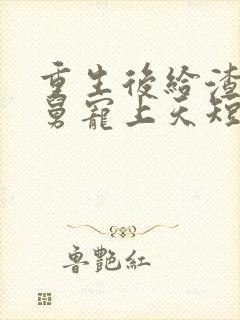 重生後給渣
舅寵上天短
魯艷紅